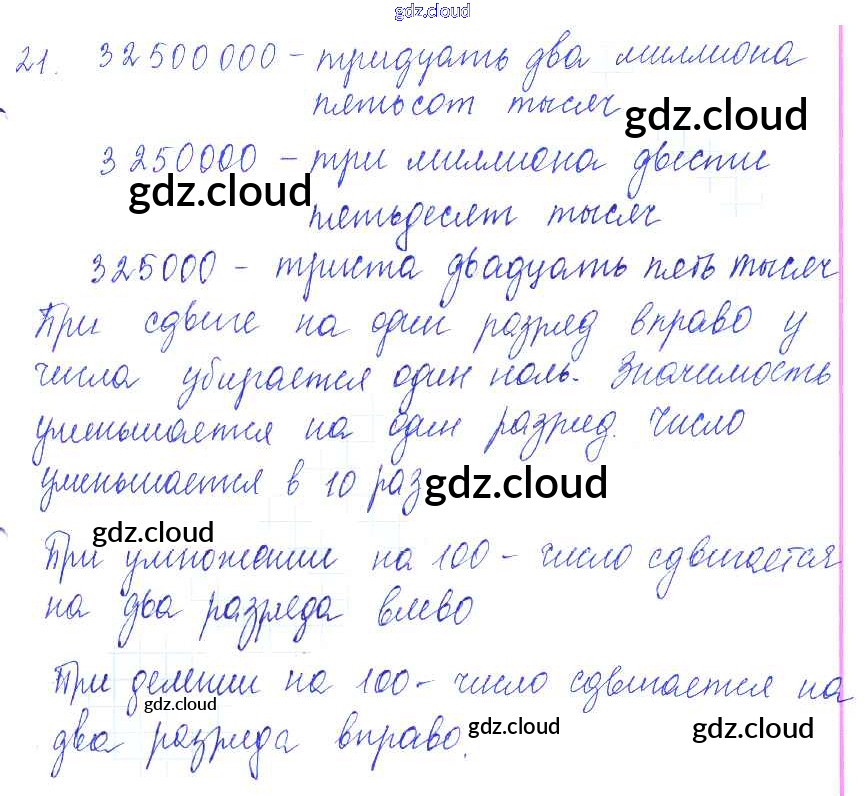 gdz.cloud
21. 32500000 - тридцать два миллиона
пятьсот тысяч gdz.cloud
3250000 - три миллиона двести
gdz.cloud
пятьдесят тысяч
325000 - триста двадцать пять тысяч
При сдвиге на один разряд вправо у
числа убирается один ноль. Значимость
уменьшается на один разряд. Число
уменьшается в 10 раз gdz.cloud
gdz.cloud
При умножении на 100 - число сдвигается
на два разряда влево
При делении на 100 - число сдвигается на
gdz.cloud
два разряда вправо. gdz.cloud gdz.cloud